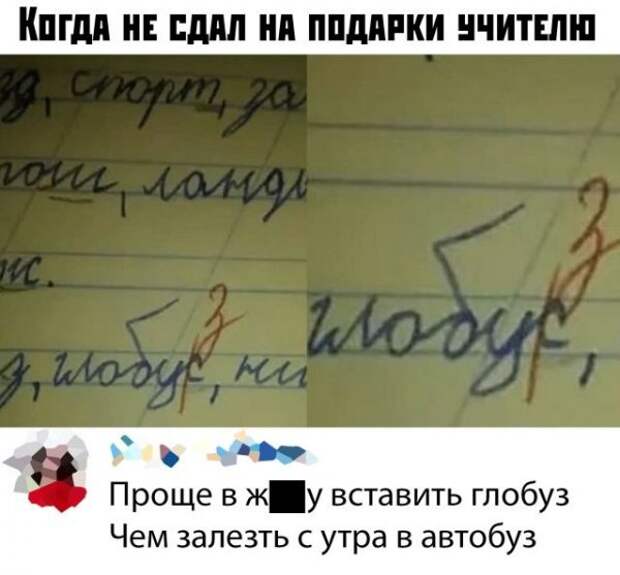 Когда не сдал на подарки учителю
спорт, за
ланды
глобус, з
глобус, з
Проще в ж у вставить глобуз
Чем залезть с утра в автобуз